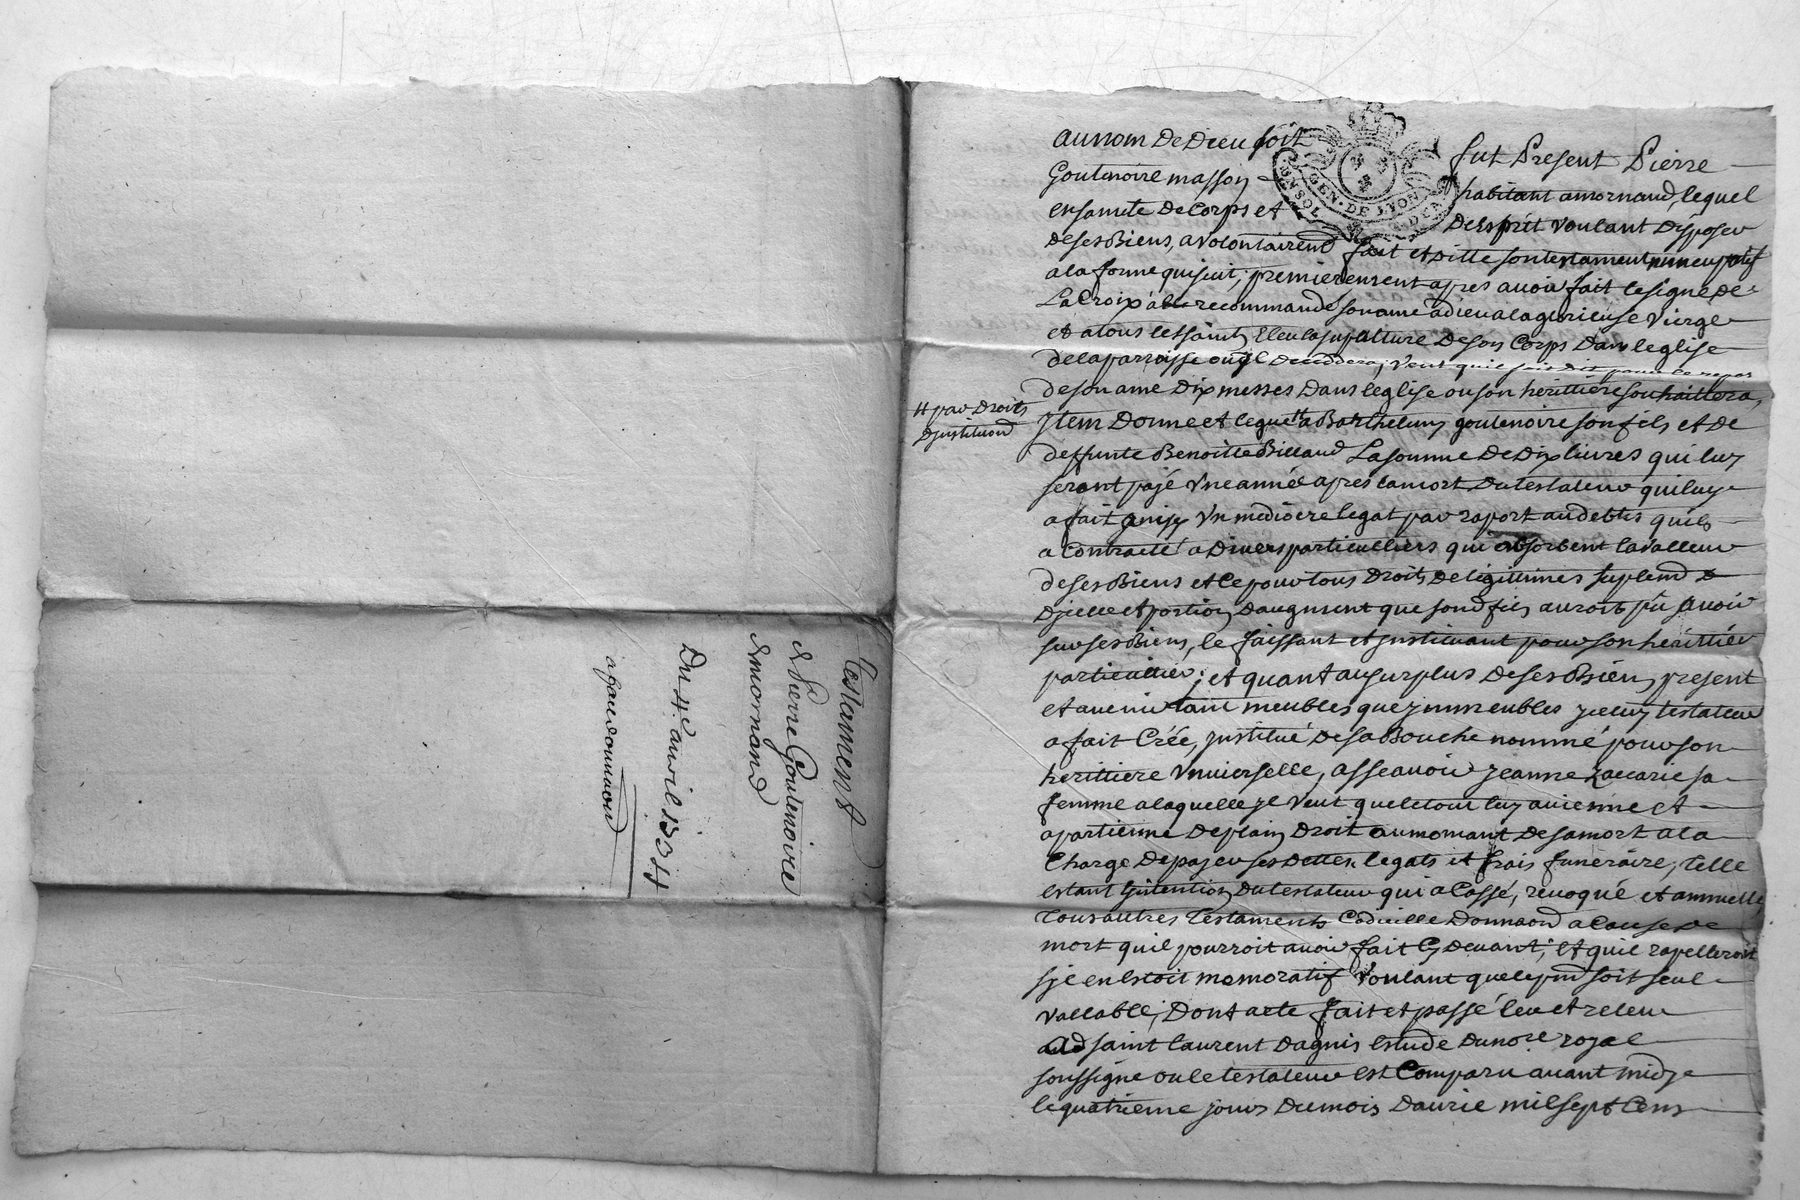 Testament
de Pierre Goutenoire
de mornand
Du 4e. avril 1744
au nom De Dieu soit fut Present Pierre
Goutenoire masson habitant a mornand, lequel
en sainte De Corps et D'esprit voulant Disposer
De ses Biens, a volontairemt fait et Ditte son testament nuncupatif
a la forme qui suit, premierement apres avoir fait le signe De
La Croix a recommandé son ame a dieu a la glorieuse vierge
et a tous les saints Eleu la sepulture De son Corps Dans leglise
de la parroisse ou jl Deceddera, veut quil soit Dit pour le repos
de son ame Dix messes Dans leglise ou son herittiere souhaittera,
# par Droits
Djnstitution
jtem Donne et legue # a Barthelemy goutenoire son fils et De
deffunte Benoitte Billaud La somme De Dix livres qui luy
seront pajé vne année apres la mort Du testateur qui luy
a fait vn mediocre legat par raport aux debtes quil
a Contracté a Divers particulliers qui absorbent la valleur
de ses Biens et Ce pour tous Droits De legittimes suplemt
Djcelle et portion Daugment que sond fils auroit pû avoir
sur ses Biens, le faissant et jnstituant pour son herittier
particullier; et quant au surplus De ses Biens present
et avenir tant meubles que jmmeubles jceluy testateur
a fait Créé, jnstitué De sa Bouche nommé pour son
herittiere vniverselle, assçavoir jeanne Zaccarie sa
femme a laquelle jl veut que le tout luy avienne et
apartienne De plain Droit au momant De sa mort a la
Charge De pajer ses Dettes, legats et frais funeraire, telle
estant l'jntention Du testateur qui a Cassé, revoqué et annuelle
tous autres testaments Codicille Donnaon a Cause De
mort quil pourroit avoir fait Cy Devant, et quil rapelleroit
sjl en Estoit memoratif voulant que le pnt soit seul
vallable, Dont acte fait et passé leu et releu
aud saint laurent Dagnis Estude Du nore royal
soussigné ou le testateur est Comparu avant midy
le quatrieme jour Du mois Davril mil sept Cens